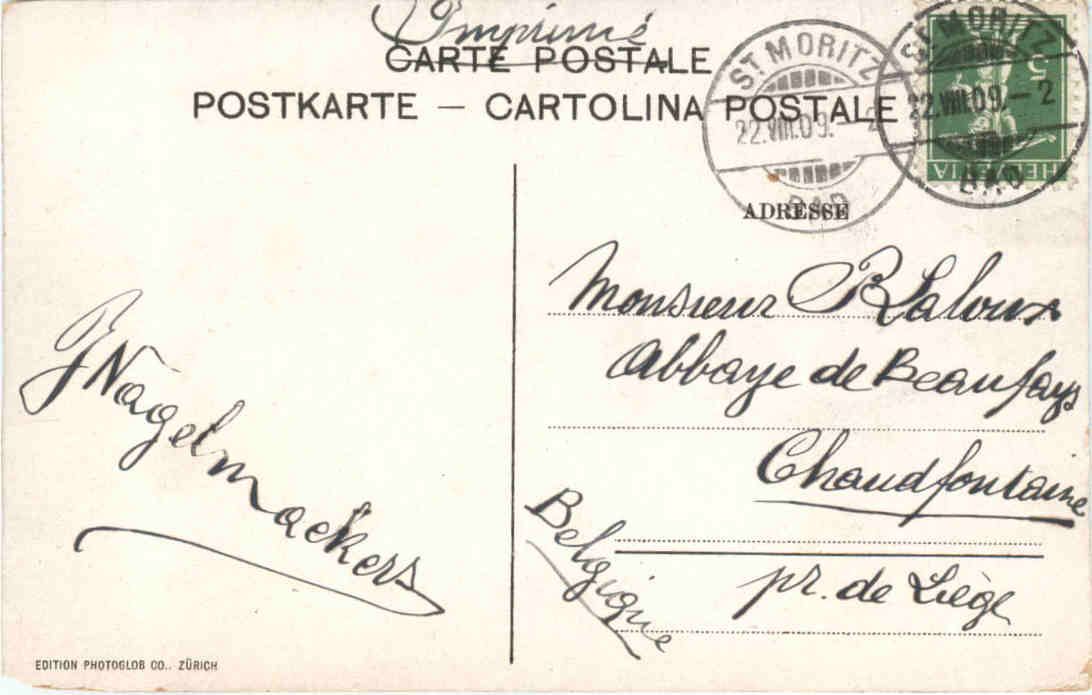 Imprimé
CARTE POSTALE
POSTKARTE — CARTOLINA POSTALE
ST. MORITZ
22.VIII.09.–2
BAD
ST. MORITZ
22.VIII.09.–2
BAD
5
HELVETIA
ADRESSE
Monsieur R Laloux
Abbaye de Beaufays
Chaudfontaine
pr. de Liège
Belgique
J Nagelmackers
EDITION PHOTOGLOB CO., ZÜRICH